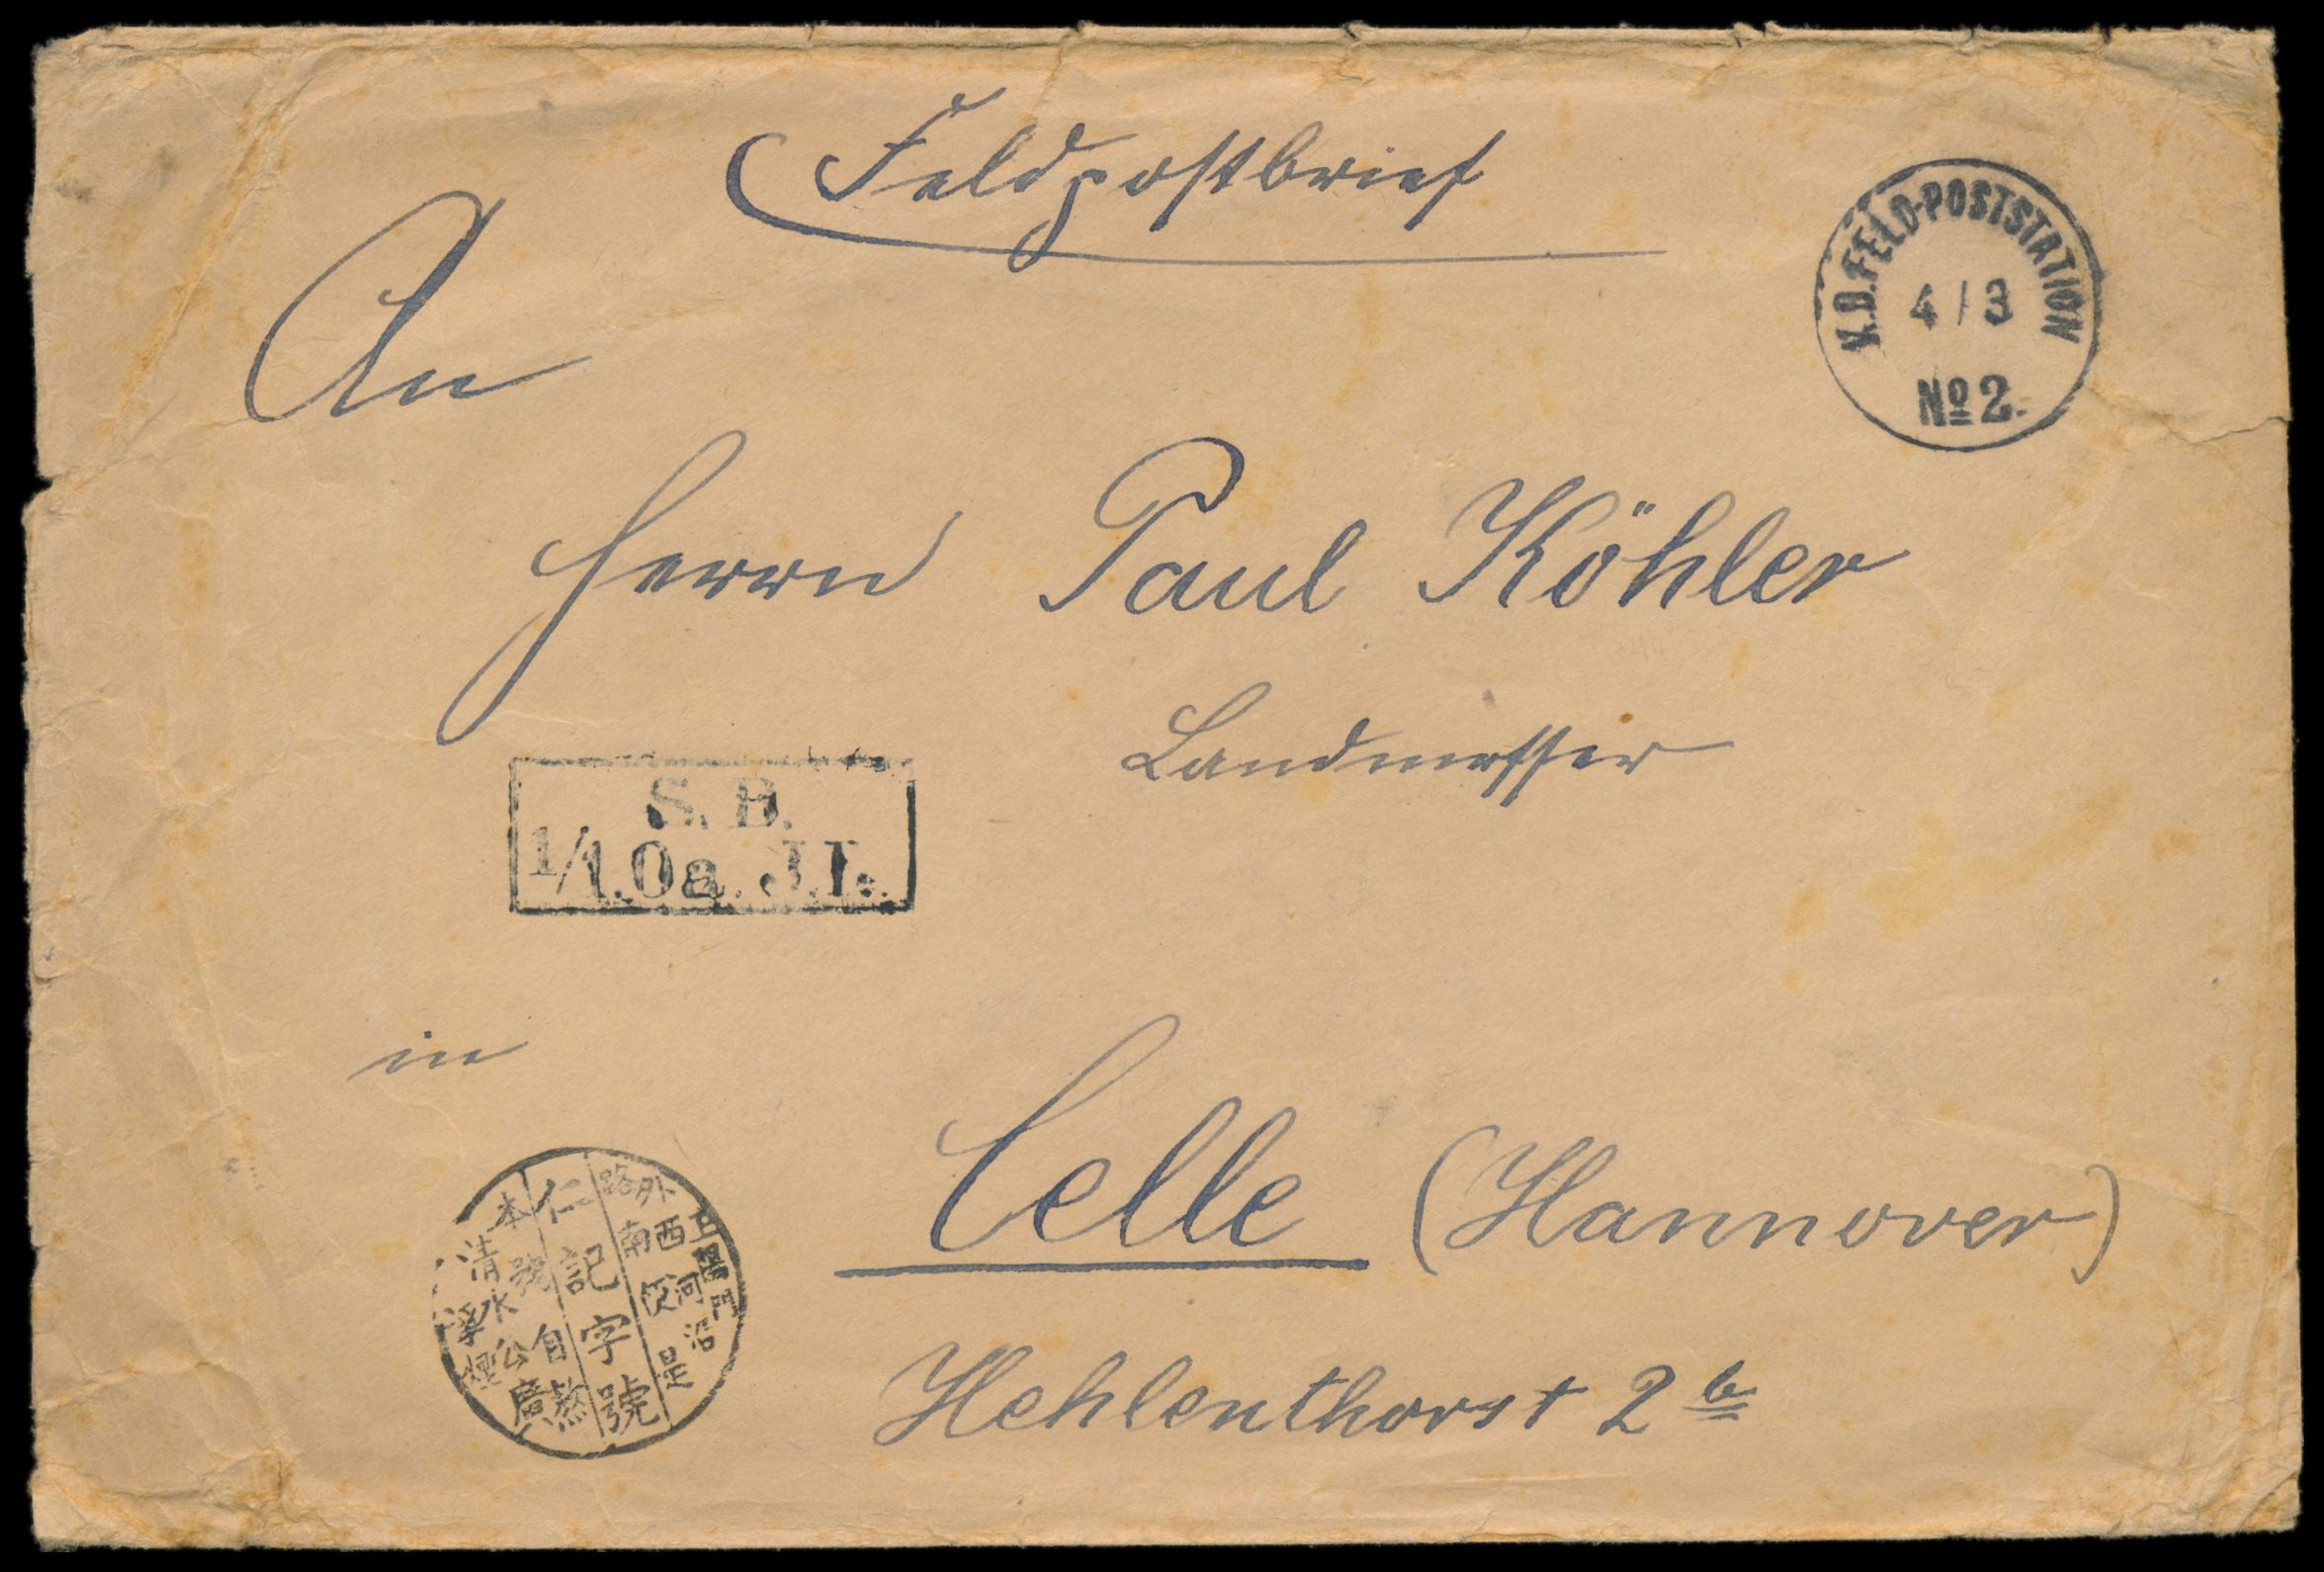 Feldpostbrief
K.D.FELD-POSTSTATION
4/3
№ 2.
An
Herrn Paul Köhler
Landmesser
S. B.
1/1.Oa. J.I.
in
Celle (Hannover)
Hehlenthorst 2 b
仁記字號
本號自熬
清水公
外西河沿
路南便是